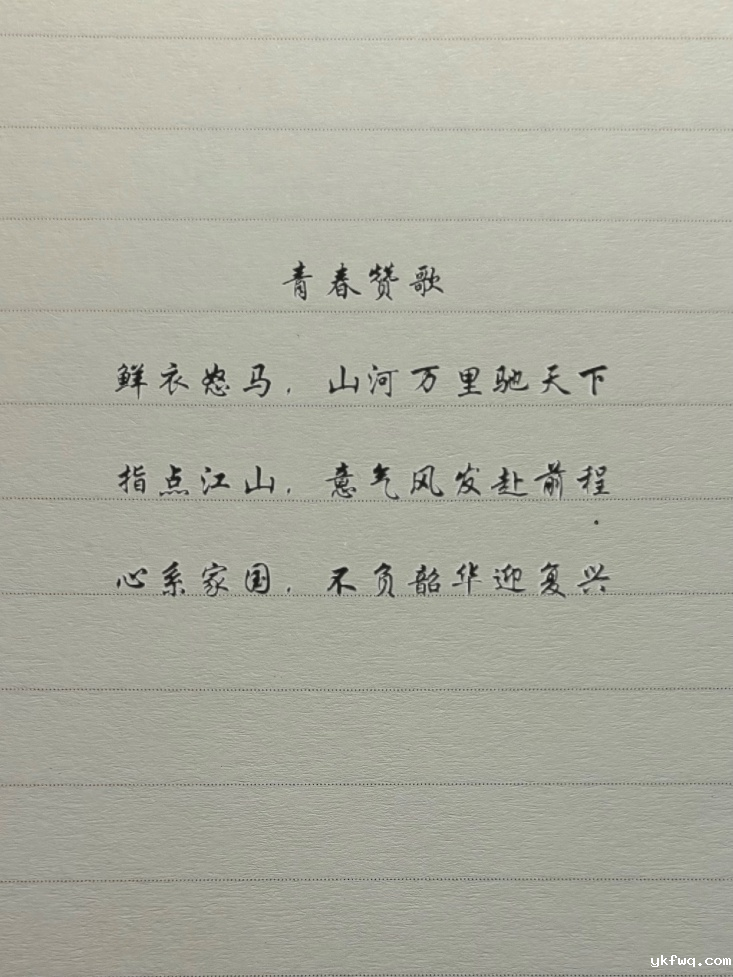 青春赞歌
鲜衣怒马，山河万里驰天下
指点江山，意气风发赴前程
心系家国，不负韶华迎复兴
ykfwq.com